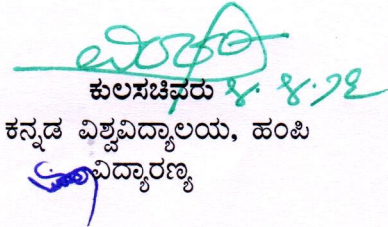 ಕುಲಸಚಿವರು ೪.೪.೨೬
ಕನ್ನಡ ವಿಶ್ವವಿದ್ಯಾಲಯ, ಹಂಪಿ
ವಿದ್ಯಾರಣ್ಯ